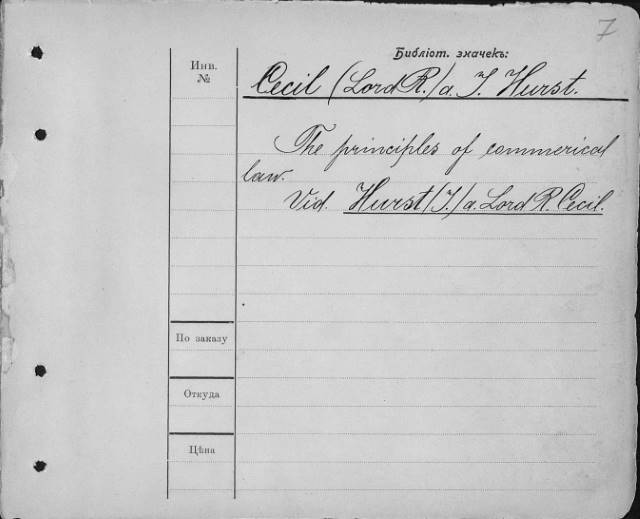 7
Библіот. значекъ:
Инв.
№
Cecil (Lord R.) a. J. Hurst.
The principles of commerical
law.
Vid. Hurst (J.) a. Lord R. Cecil.
По заказу
Откуда
Цѣна